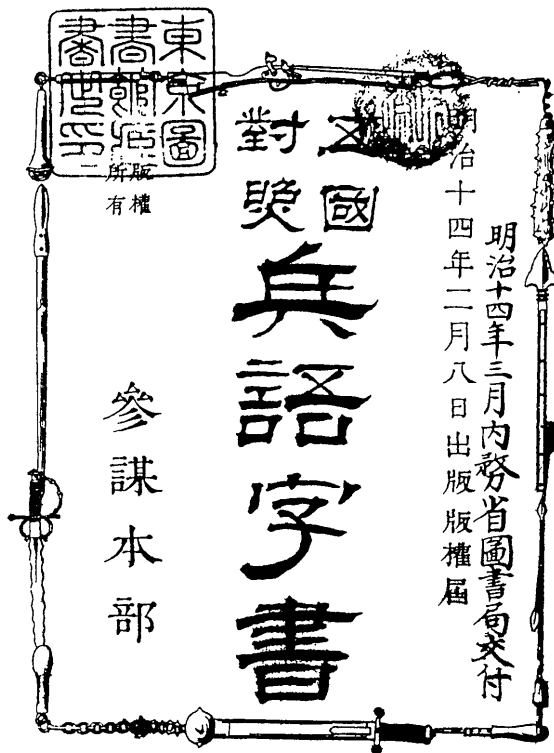 東京圖
書館藏
書之印
明治十四年三月内務省圖書局交付
明治十四年二月八日出版版權屆
五國
對照
兵語字書
版權
所有
參謀本部